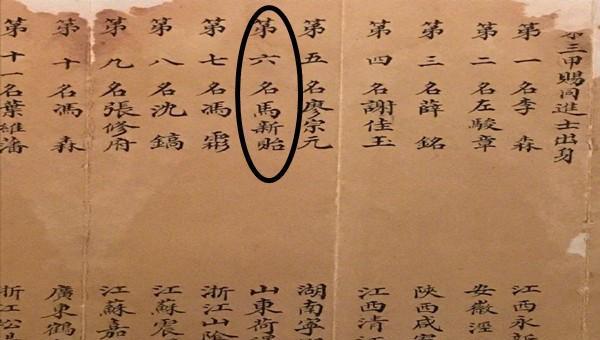 第三甲賜同進士出身
第一名李森 江西永新
第二名左駿章 安徽涇
第三名薛銘 陝西咸寧
第四名謝佳玉 江西清江
第五名廖宗元 湖南寧
第六名馬新貽 山東荷
第七名馮 浙江山陰
第八名沈鎬 江蘇震
第九名張修府 江蘇嘉
第十名馮森 廣東鶴
第十一名葉維藩 浙江松